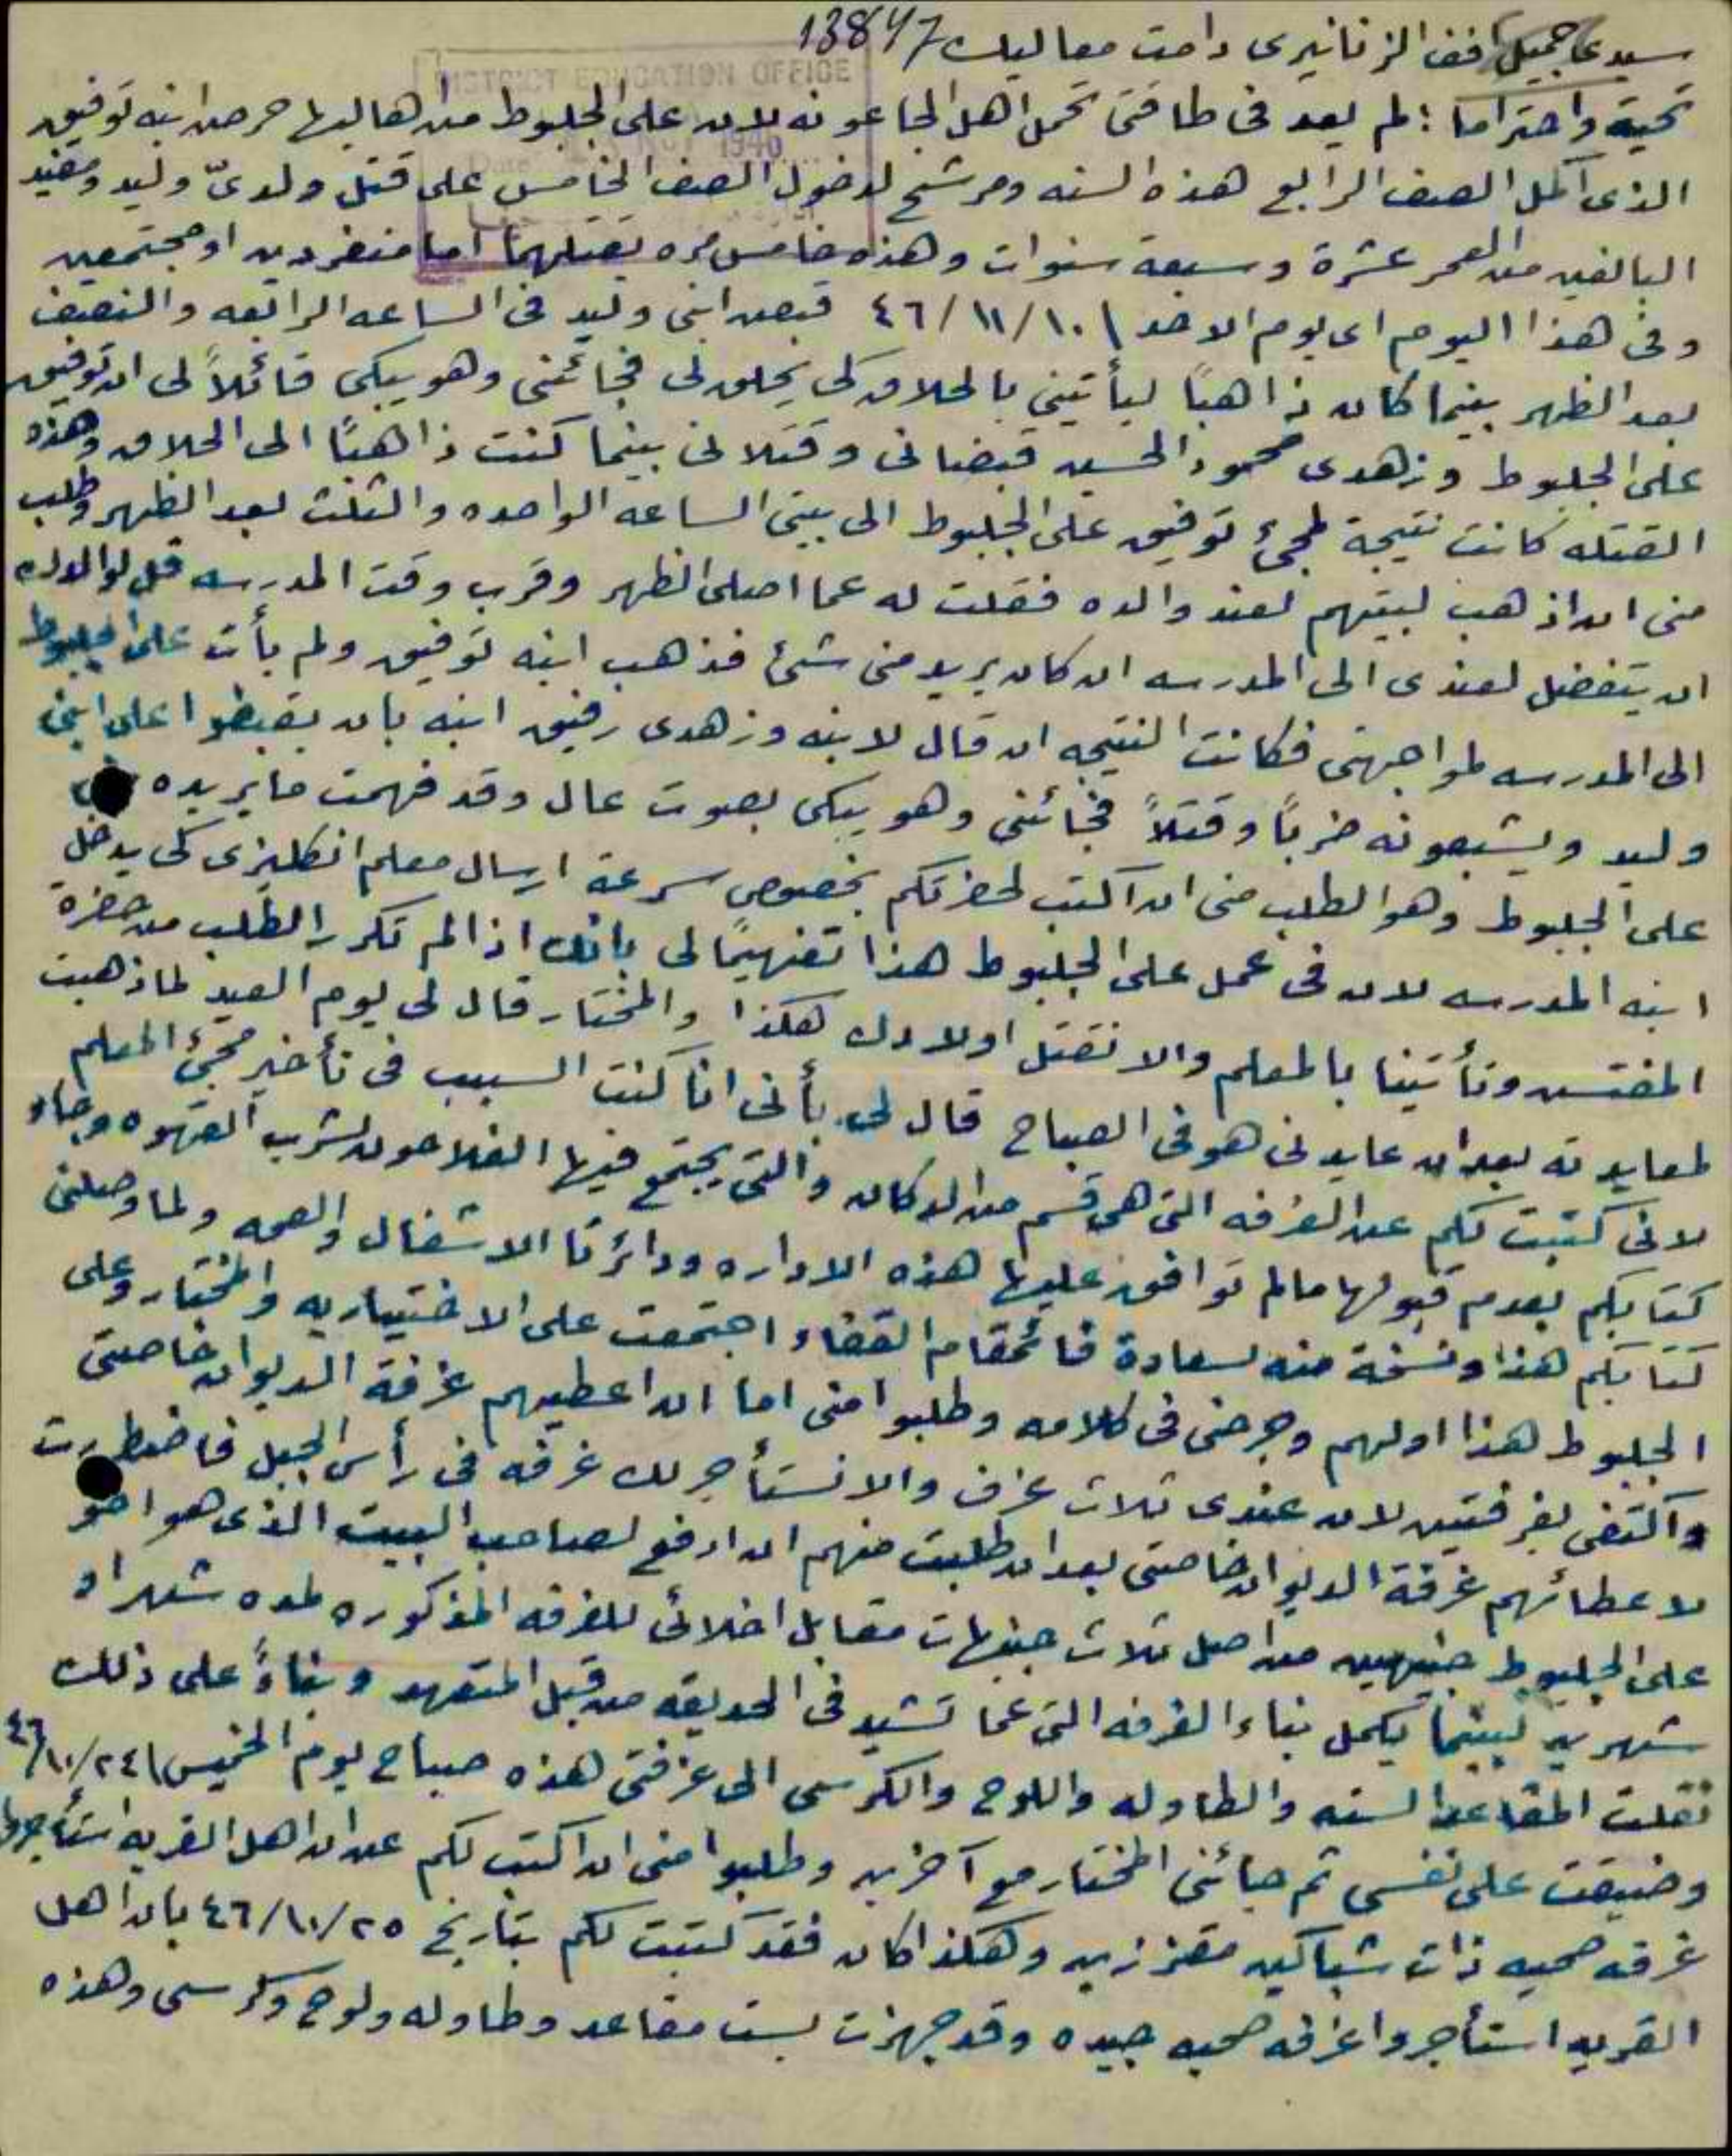 13847
سيدي جميل افندي الزنانيري دامت معاليك
DISTRICT EDUCATION OFFICE
1946
تحية واحتراما : لم يعد في طاقتي تحمل اهل الجاعونه لان على الجلبوط من اهاليها حرص ابنه توفيق
الذي اكمل الصف الرابع هذه السنه ومرشح لدخول الصف الخامس على قتل ولديّ وليد ومفيد
البالغين من العمر عشرة وسبعة سنوات وهذه خامس مره يقتلهما اما منفردين او مجتمعين
وفي هذا اليوم اي يوم الاحد ١٠/١١/٤٦ قبض ابني وليد في الساعه الرابعه والنصف
بعد الظهر بينما كان ذاهباً ليأتيني بالحلاق كي يحلق لي فجائني وهو يبكي قائلاً لي ان توفيق
على الجلبوط وزهدي محمود الحسين قبضاني وقتلاني بينما كنت ذاهباً الى الحلاق وهذه
القتله كانت نتيجة لمجئ توفيق على الجلبوط الى بيتي الساعه الواحده والثلث بعد الظهر وطلب
مني ان اذهب لبيتهم لعند والده فقلت له عما اصلي الظهر وقرب وقت المدرسه قل لوالدك
ان يتفضل لعندي الى المدرسه ان كان يريد مني شئ فذهب ابنه توفيق ولم يأت على الجلبوط
الى المدرسه لمواجهتي فكانت النتيجه ان قال لابنه وزهدي رفيق ابنه بان يقبضوا على ابني
وليد ويشبعونه ضرباً وقتلاً فجائني وهو يبكي بصوت عال وقد فهمت ما يريده
على الجلبوط وهو الطلب مني ان اكتب لحضرتكم بخصوص سرعة ارسال معلم انكليزي كي يدخل
ابنه المدرسه لان في عمل على الجلبوط هذا تفهيماً لي بانك اذا لم تكرر الطلب من حضرة
المفتش وتأتينا بالمعلم والا نقتل اولادك هكذا والمختار قال لي يوم العيد لما ذهبت
لمعايدته بعد ان عايدني هو في الصباح قال لي بأني انا كنت السبب في تأخير مجئ المعلم
لاني كتبت لكم عن الغرفه التي هي قسم من الدكان والتي يجتمع فيها الفلاحون لشرب القهوه وجاء
كتابكم بعدم قبولها مالم توافق عليها هذه الاداره ودائرتا الاشغال والصحه ولما وصلني
كتابكم هذا ونسخة منه لسعادة قائمقام القضاء اجتمعت على الاختياريه والمختار وعلى
الجلبوط هذا اولهم وجرحني في كلامه وطلبوا مني اما ان اعطيهم غرفة الديوان خاصتي
واكتفي بغرفتين لان عندي ثلاث غرف والا نستأجر لك غرفه في رأس الجبل فاضطررت
لاعطائهم غرفة الديوان خاصتي بعد ان طلبت منهم ان ادفع لصاحب البيت الذي هو اخو
على الجلبوط جنيهين من اصل ثلاث جنيهات مقابل اخلائي للغرفه المذكوره لمده شهر او
شهرين لبينما يكمل بناء الغرفه التي عما تشيد في الحديقه من قبل المتعهد وبناءً على ذلك
نقلت المقاعد السته والطاوله واللوح والكرسي الى غرفتي هذه صباح يوم الخميس ٢٤/١٠/٤٦
وضيقت على نفسي ثم جائني المختار مع آخرين وطلبوا مني ان اكتب لكم عن ان اهل القريه استأجروا
غرفه صحيه ذات شباكين مقززين وهكذا كان فقد كتبت لكم بتاريخ ٢٥/١٠/٤٦ بان اهل
القريه استأجروا غرفه صحيه جيده وقد جهزت بست مقاعد وطاوله ولوح وكرسي وهذه